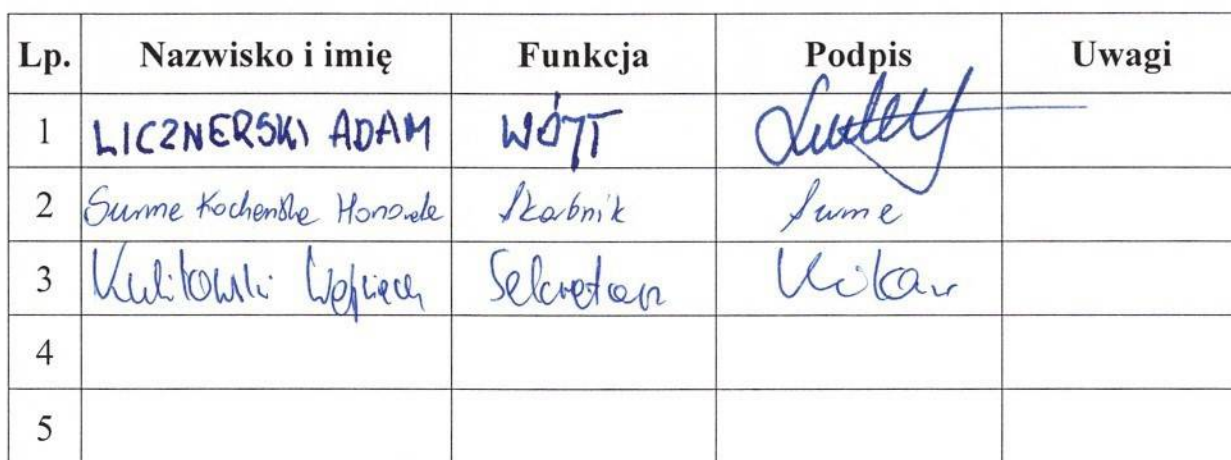 Lp. Nazwisko i imię Funkcja Podpis Uwagi
1 LICZNERSKI ADAM WÓJT
2 Surma Kochańska Honorata Skarbnik Surma
3 Wojciech Sekretarz
4
5